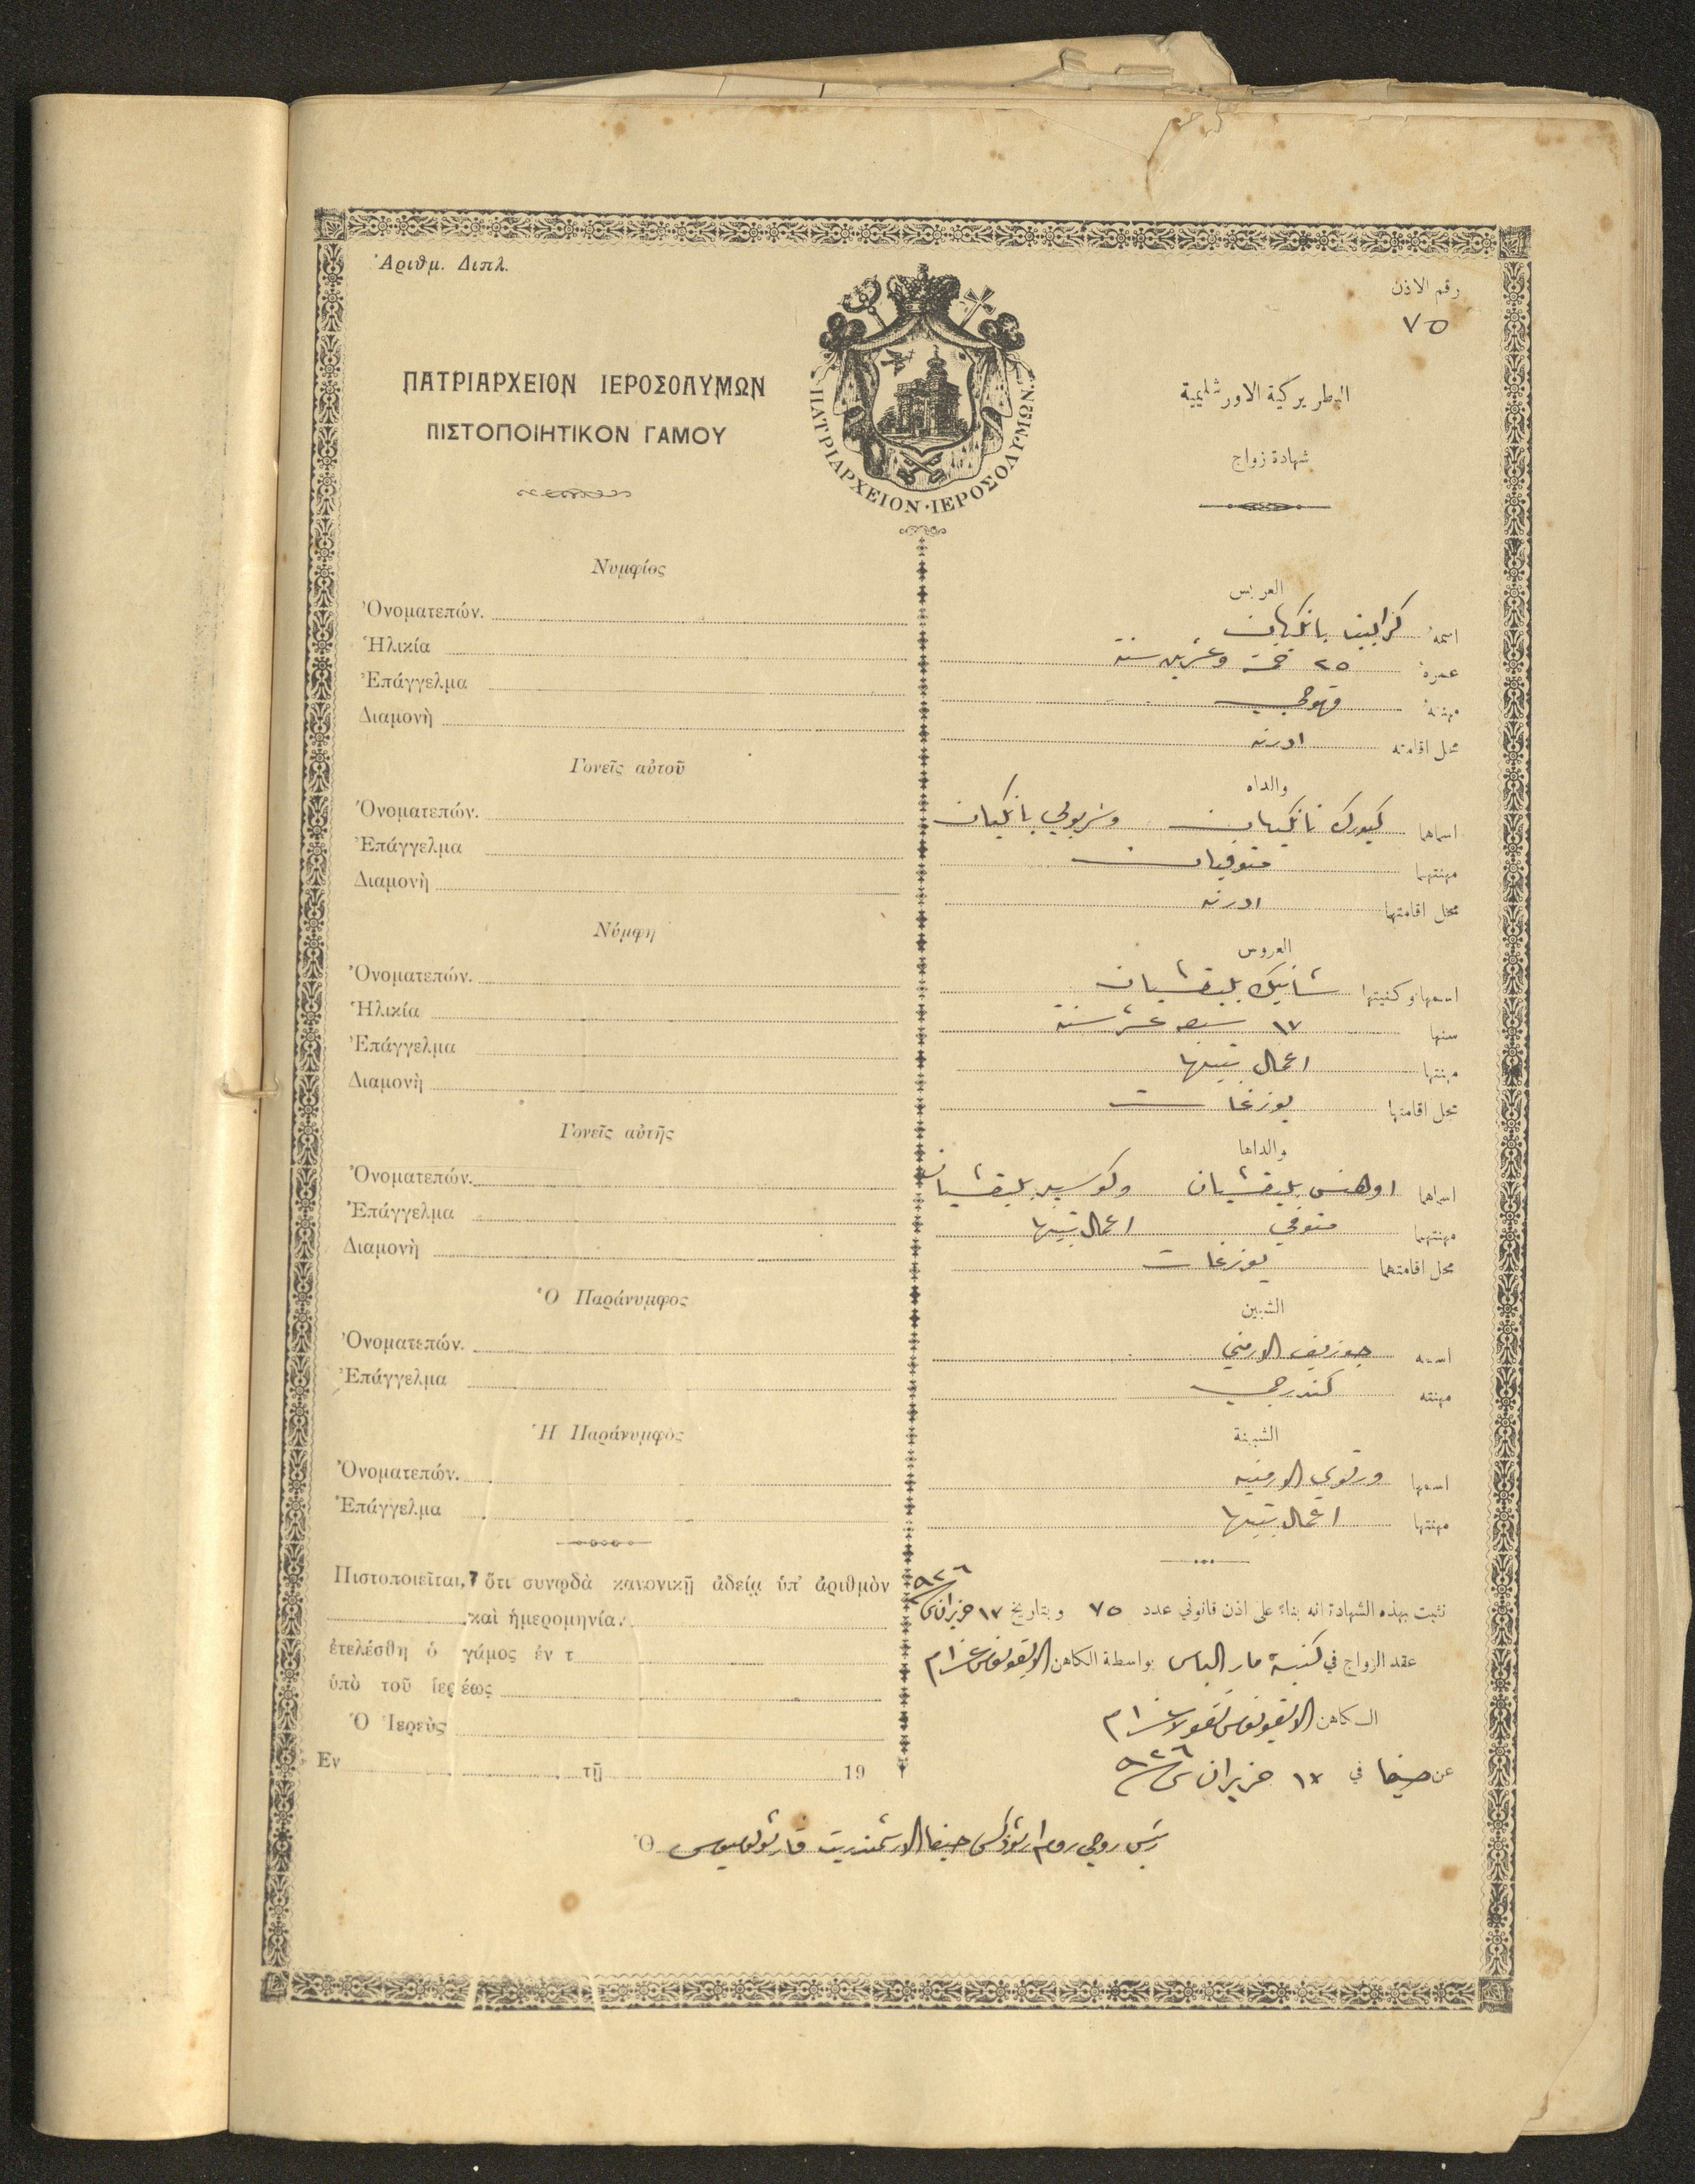 Ἀριθμ. Διπλ.
رقم الاذن
٧٥
ΠΑΤΡΙΑΡΧΕΙΟΝ ΙΕΡΟΣΟΛΥΜΩΝ
ΠΙΣΤΟΠΟΙΗΤΙΚΟΝ ΓΑΜΟΥ
ΠΑΤΡΙΑΡΧΕΙΟΝ·ΙΕΡΟΣΟΛΥΜΩΝ
البطريركية الاورشليمية
شهادة زواج
Νυμφίος
Ὀνοματεπών.
Ἡλικία
Ἐπάγγελμα
Διαμονὴ
Γονεῖς αὐτοῦ
Ὀνοματεπών.
Ἐπάγγελμα
Διαμονὴ
Νύμφη
Ὀνοματεπών.
Ἡλικία
Ἐπάγγελμα
Διαμονὴ
Γονεῖς αὐτῆς
Ὀνοματεπών.
Ἐπάγγελμα
Διαμονὴ
Ὁ Παράνυμφος
Ὀνοματεπών.
Ἐπάγγελμα
Ἡ Παράνυμφὸς
Ὀνοματεπών.
Ἐπάγγελμα
Πιστοποιεῖται, ὅτι συνῳδὰ κανονικῇ ἀδείᾳ ὑπ' ἀριθμὸν
καὶ ἡμερομηνία
ἐτελέσθη ὁ γάμος ἐν τ
ὑπὸ τοῦ ἱερέως
Ὁ Ἱερεὺς
Ἐν τῇ 19
العريس
اسمه كرابيت بانكيان
عمره ٢٥ خمسة وعشرين سنة
مهنته قهوجي
محل اقامته ادرنه
والداه
اسماهما كيورك بانكيان بانكيان
مهنتهما متوفيان
محل اقامتهما ادرنه
العروس
اسمها وكنيتها شانيك بليقشيان
سنها ١٧ سبعة عشر سنة
مهنتها اعمال بيتها
محل اقامتها يوزغات
والداها
اسماهما اوهنس بليقشيان بليقشيان
مهنتهما متوفي اعمال بيتها
محل اقامتهما يوزغات
الشبين
اسمه جوزيف الارمني
مهنته كندرجي
الشبينة
اسمها الارمنيه
مهنتها اعمال بيتها
نثبت بهذه الشهادة انه بناءً على اذن قانوني عدد ٧٥ وبتاريخ ١٧ حزيران سنة ٩٢٦
عقد الزواج في كنيسة مار الياس بواسطة الكاهن الايقونوموس
الكاهن الايقونوموس نقولا
عن حيفا في ١٧ حزيران سنة ٩٢٦
Ὁ رئيس روحي روم ارثوذكس حيفا الارشمندريت